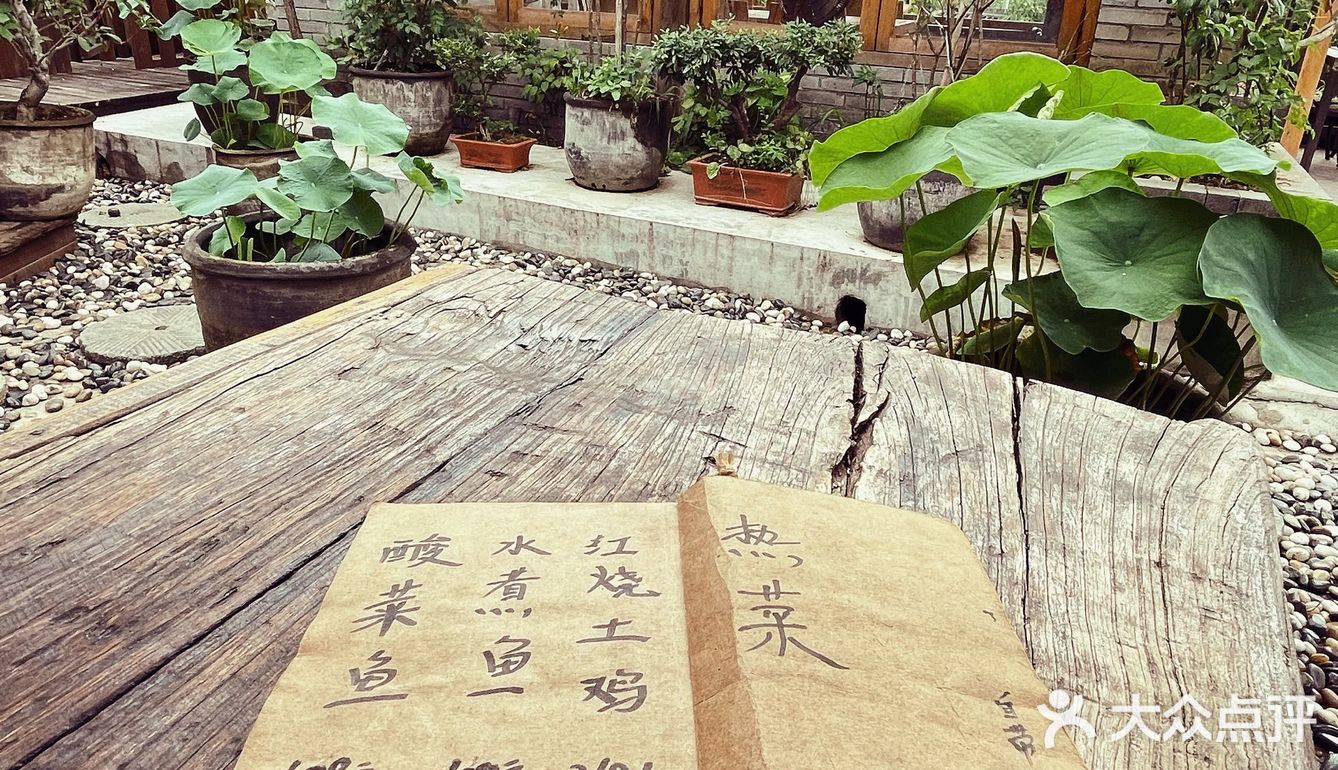 热菜
红烧土鸡
水煮鱼
酸菜鱼
大众点评